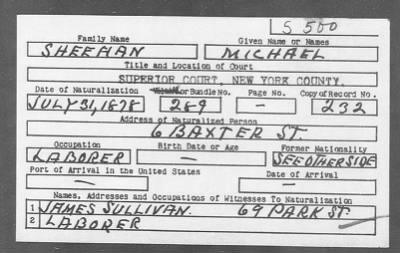 S 550
Family Name Given Name or Names
SHEEHAN MICHAEL
Title and Location of Court
SUPERIOR COURT, NEW YORK COUNTY.
Date of Naturalization or Bundle No. Page No. Copy of Record No.
JULY 31, 1878 269 — 232
Address of Naturalized Person
6 BAXTER ST.
Occupation Birth Date or Age Former Nationality
LABORER — SEE OTHER SIDE
Port of Arrival in the United States Date of Arrival
— —
Names, Addresses and Occupations of Witnesses To Naturalization
1 JAMES SULLIVAN. 69 PARK ST.
2 LABORER